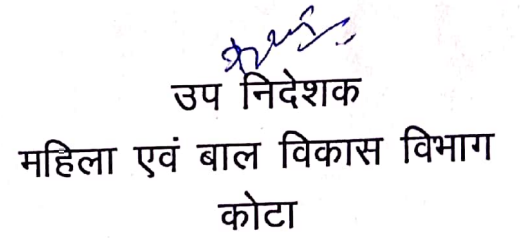 उप निदेशक
महिला एवं बाल विकास विभाग
कोटा